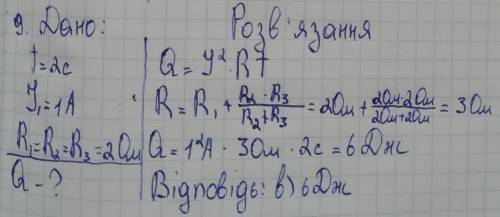 9. Дано:
t=2с
I₁=1А
R₁=R₂=R₃=2Ом
Q-?
Розв'язання
Q=I²·Rt
R=R₁+(R₂·R₃)/(R₂+R₃)=2Ом+(2Ом·2Ом)/(2Ом+2Ом)=3Ом
Q=1²А·3Ом·2с=6Дж
Відповідь: в) 6Дж